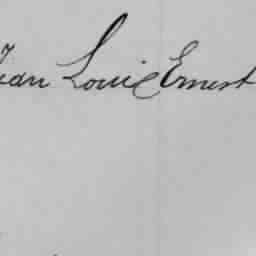 Jean Louis Ernest